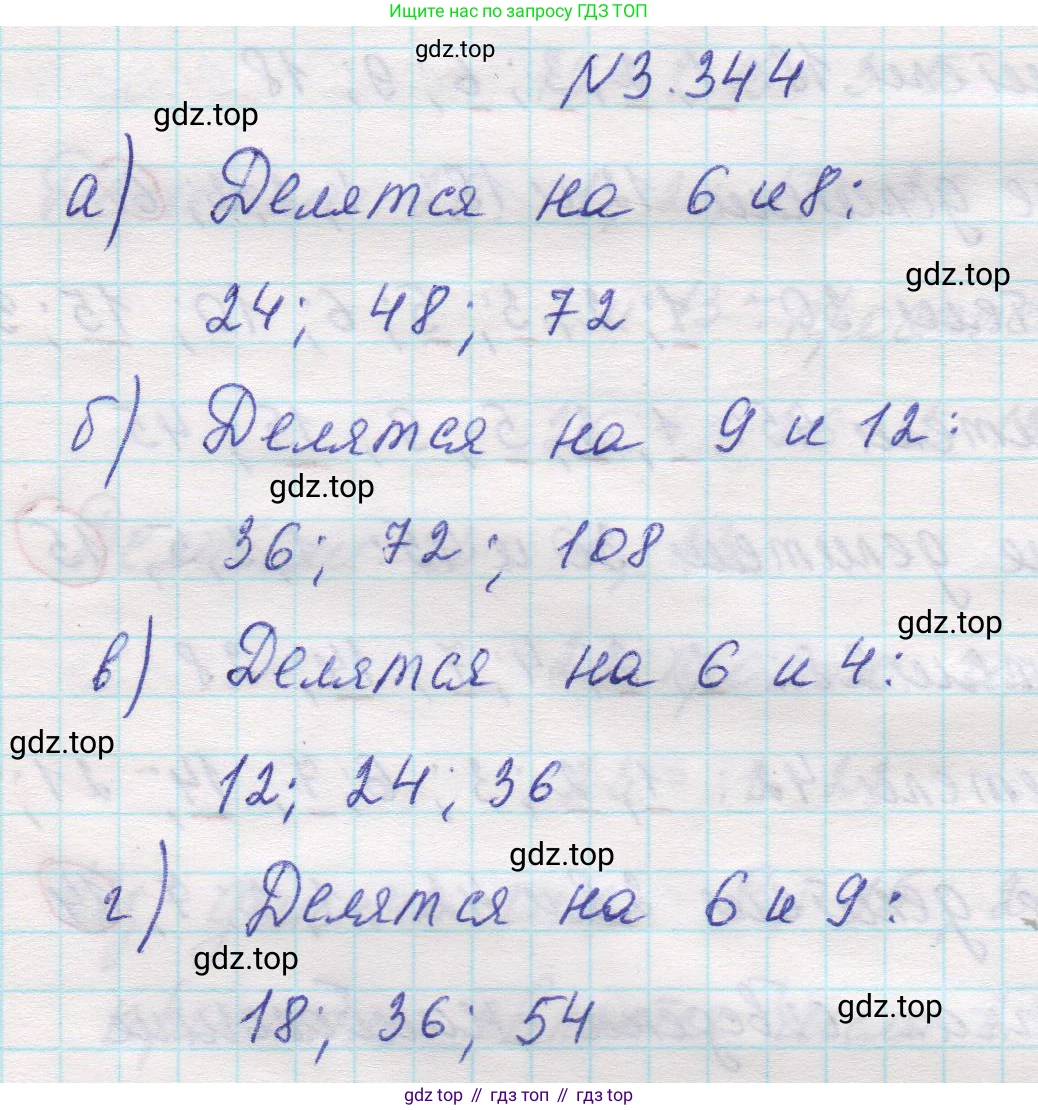 Ищите нас по запросу ГДЗ ТОП
gdz.top
№3.344
gdz.top
а) Делятся на 6 и 8:
gdz.top
24; 48; 72
б) Делятся на 9 и 12:
gdz.top
36; 72; 108
gdz.top
в) Делятся на 6 и 4:
gdz.top
12; 24; 36
gdz.top
г) Делятся на 6 и 9:
gdz.top
18; 36; 54
gdz.top
gdz top // гдз топ // гдз top